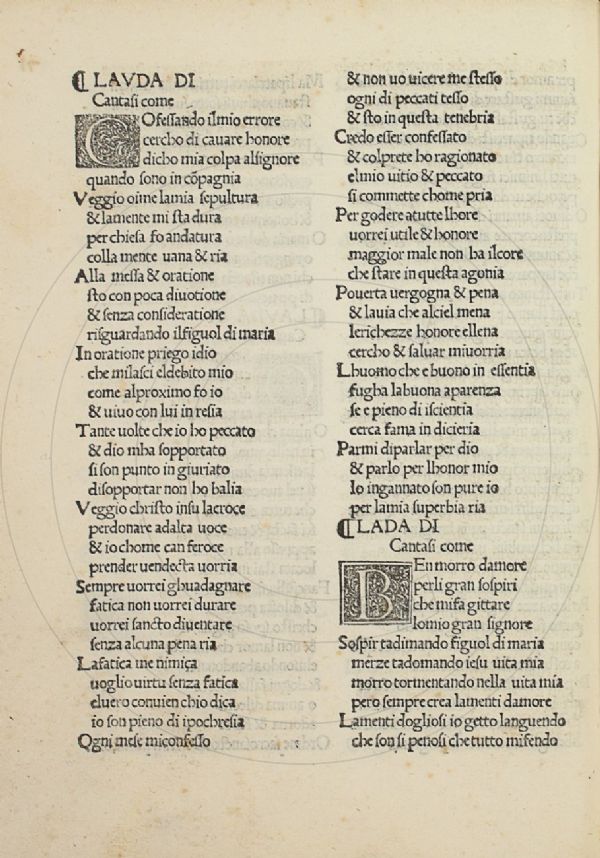 ¶ LAVDA DI
Cantasi come
COfessando ilmio errore
cercho di cauare honore
dicho mia colpa alsignore
quando sono in cōpagnia
Veggio oime lamia sepultura
& lamente mi sta dura
per chiesa fo andatura
colla mente uana & ria
Alla messa & oratione
sto con poca diuotione
& senza consideratione
risguardando ilfiguol di maria
In oratione priego idio
che milasci eldebito mio
come alproximo fo io
& uiuo con lui in resia
Tante uolte che io ho peccato
& dio mha sopportato
si son punto in giuriato
disopportar non ho balia
Veggio christo insu lacroce
perdonare adalta uoce
& io chome can feroce
prender uendecta uorria
Sempre uorrei ghuadagnare
fatica non uorrei durare
uorrei sancto diuentare
senza alcuna pena ria
Lafatica me nimica
uoglio uirtu senza fatica
eluero conuien chio dica
io son pieno di ipochresia
Ogni mese miconfesso
& non uo uicere me stesso
ogni di peccati tesso
& sto in questa tenebria
Credo esser confessato
& colprete ho ragionato
elmio uitio & peccato
si commette chome pria
Per godere atutte lhore
uorrei utile & honore
maggior male non ha ilcore
che stare in questa agonia
Pouerta uergogna & pena
& lauia che alciel mena
lerichezze honore ellena
cercho & saluar miuorria
Lhuomo che e buono in essentia
fugha labuona aparenza
se e pieno di iscientia
cerca fama in diceria
Parmi diparlar per dio
& parlo per lhonor mio
Io ingannato son pure io
per lamia superbia ria
¶ LADA DI
Cantasi come
BEn morro damore
perli gran sospiri
che mifa gittare
lomio gran signore
Sospir tadimando figuol di maria
merze tadomando iesu uita mia
morro tormentando nella uita mia
pero sempre crea lamenti damore
Lamenti dogliosi io getto languendo
che son si penosi che tutto mifendo